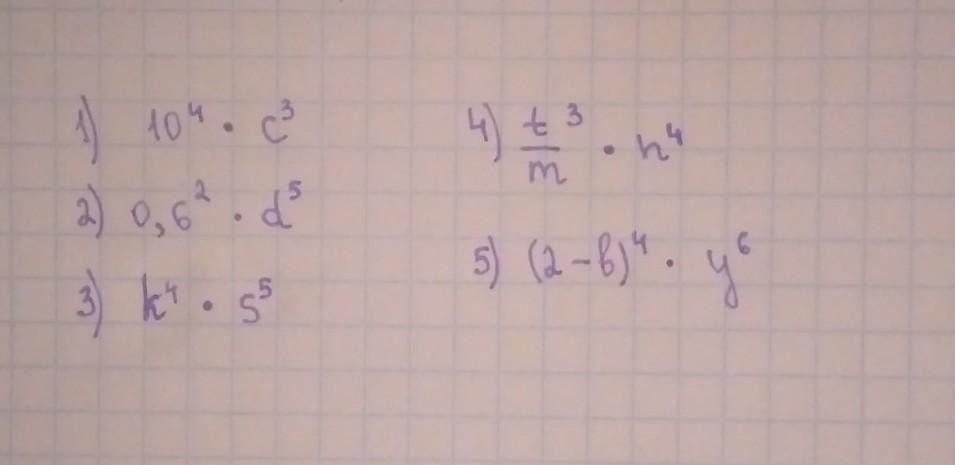 1) 10⁴ · c³
2) 0,6² · d⁵
3) k⁴ · s⁵
4) t³/m · n⁴
5) (2-b)⁴ · y⁶